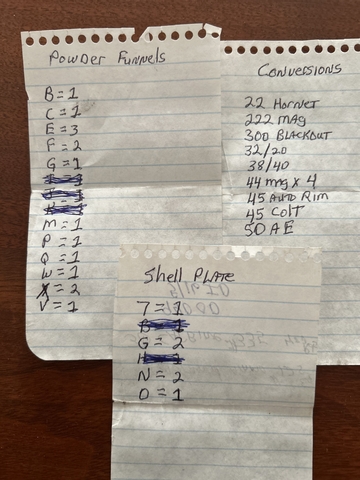 Powder Funnels
B = 1
C = 1
E = 3
F = 2
G = 1
M = 1
P = 1
Q = 1
W = 1
X = 2
V = 1
Conversions
22 Hornet
222 mag
300 Blackout
32/20
38/40
44 mag x 4
45 Auto Rim
45 Colt
50 AE
Shell Plate
7 = 1
G = 2
N = 2
O = 1